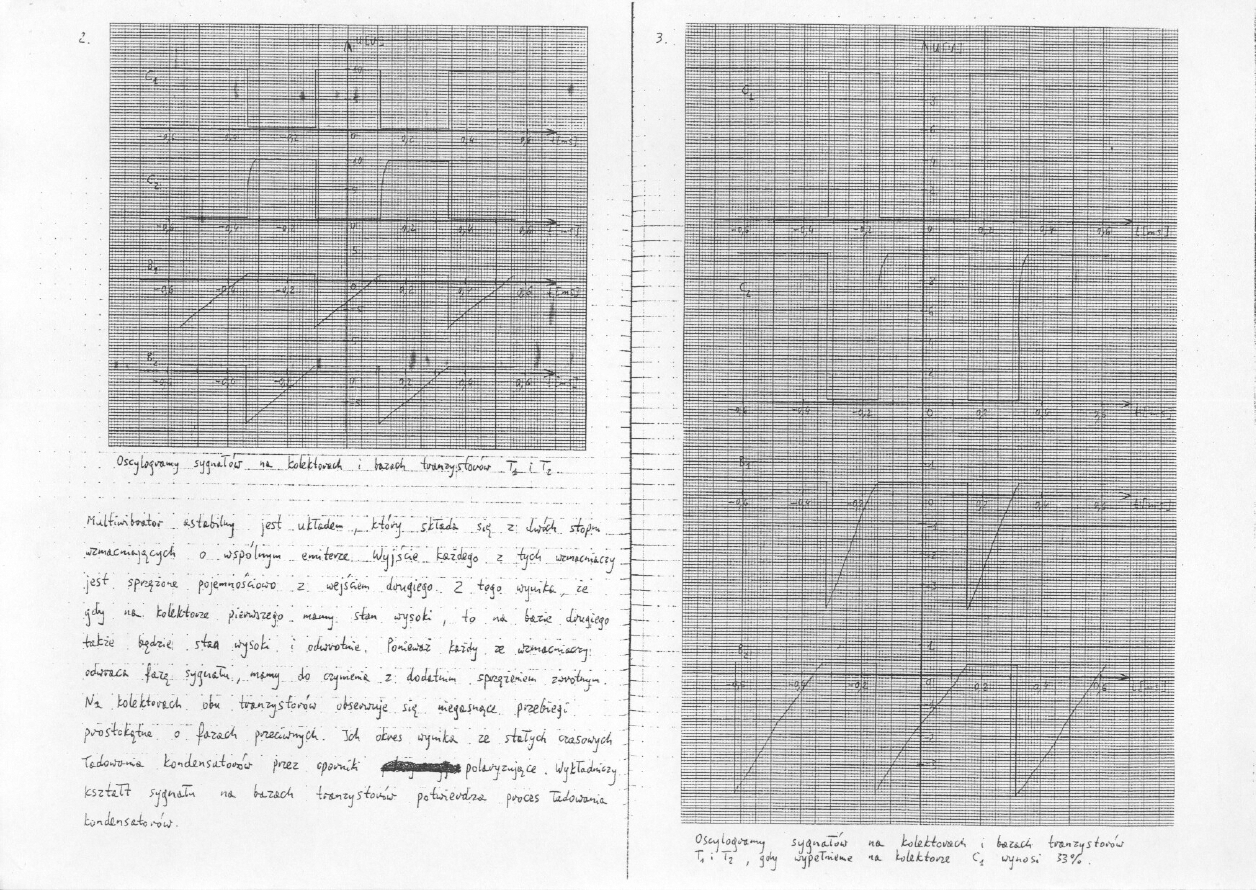 2.
U[V]
C₁
10
-0,6 -0,4 -0,2 0 0,2 0,4 0,6 t[ms]
10
C₂
5
-0,6 -0,4 -0,2 0 0,2 0,4 0,6 t[ms]
5
B₁
-0,6 -0,4 -0,2 0 0,2 0,4 0,6 t[ms]
-5
5
B₂
-0,6 -0,4 -0,2 0 0,2 0,4 0,6 t[ms]
-5
Oscylogramy sygnałów na kolektorach i bazach tranzystorów T₁ i T₂.
Multiwibrator astabilny jest układem, który składa się z dwóch stopni
wzmacniających o wspólnym emiterze. Wyjście każdego z tych wzmacniaczy
jest sprzężone pojemnościowo z wejściem drugiego. Z tego wynika, że
gdy na kolektorze pierwszego mamy stan wysoki, to na bazie drugiego
także będzie stan wysoki i odwrotnie. Ponieważ każdy ze wzmacniaczy
odwraca fazę sygnału, mamy do czynienia z dodatnim sprzężeniem zwrotnym.
Na kolektorach obu tranzystorów obserwuje się niegasnące przebiegi
prostokątne o fazach przeciwnych. Ich okres wynika ze stałych czasowych
ładowania kondensatorów przez oporniki polaryzujące. Wykładniczy
kształt sygnału na bazach tranzystorów potwierdza proces ładowania
kondensatorów.
3.
U[V]
C₁
8
6
4
2
-0,6 -0,4 -0,2 0 0,2 0,4 0,6 t[ms]
C₂
8
6
4
2
-0,6 -0,4 -0,2 0 0,2 0,4 0,6 t[ms]
B₁
1
-0,6 -0,4 -0,2 0 0,2 0,4 0,6 t[ms]
-1
-3
B₂
1
-0,6 -0,4 -0,2 0 0,2 0,4 0,6 t[ms]
Oscylogramy sygnałów na kolektorach i bazach tranzystorów
T₁ i T₂, gdy wypełnienie na kolektorze C₁ wynosi 33%.